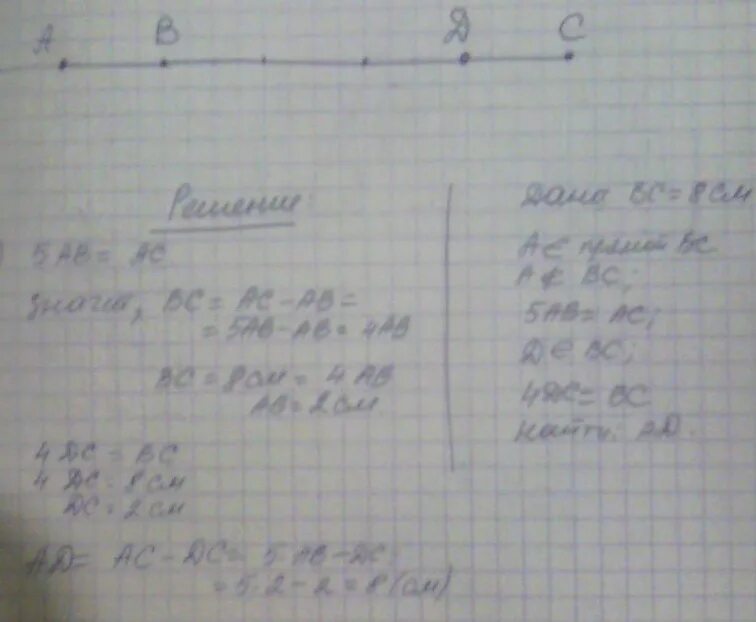 A B D C
Решение:
5AB = AC
значит, BC = AC - AB =
= 5AB - AB = 4AB
BC = 8 см = 4 AB
AB = 2 см
4 DC = BC
4 DC = 8 см
DC = 2 см
AD = AC - DC = 5 AB - DC
= 5·2 - 2 = 8 (см)
Дано BC = 8 см
A ∈ прямой BC
A ∉ BC;
5AB = AC;
D ∈ BC;
4DC = BC
Найти: AD.